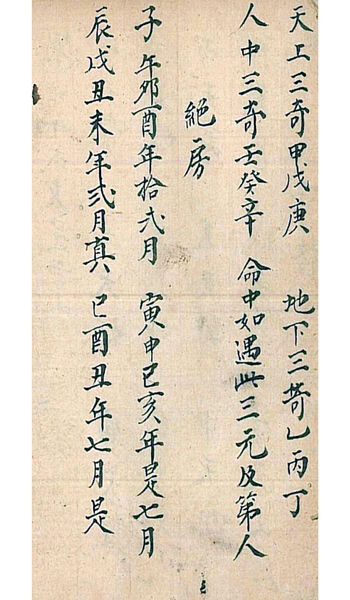 天上三奇甲戊庚　地下三奇乙丙丁
人中三奇壬癸辛　命中如遇此三元及第人
絕房
子午卯酉年拾弍月　寅申巳亥年是七月
辰戌丑未年弍月真　巳酉丑年七月是